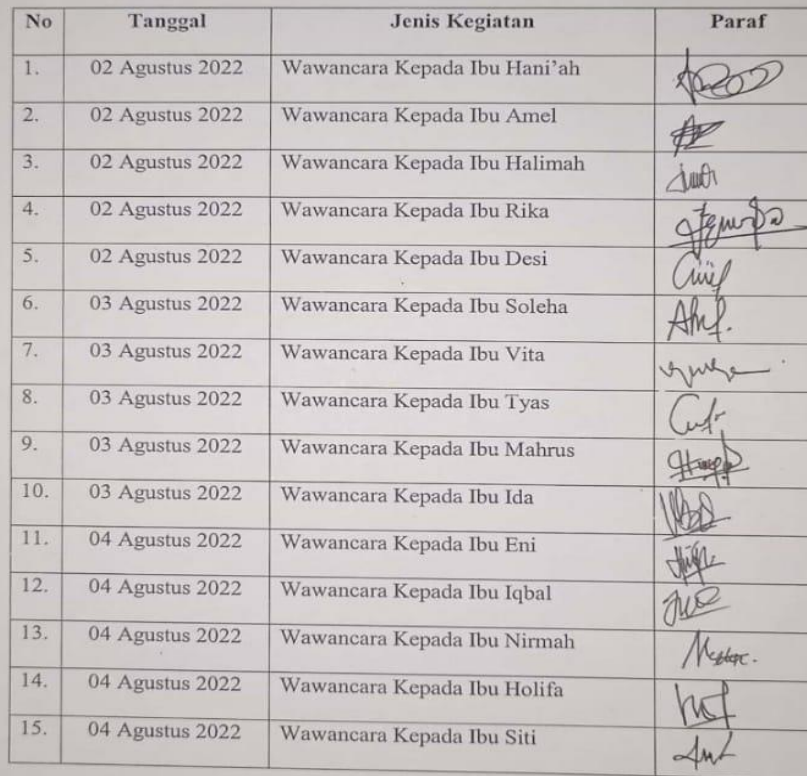 No Tanggal Jenis Kegiatan Paraf
1. 02 Agustus 2022 Wawancara Kepada Ibu Hani'ah
2. 02 Agustus 2022 Wawancara Kepada Ibu Amel
3. 02 Agustus 2022 Wawancara Kepada Ibu Halimah
4. 02 Agustus 2022 Wawancara Kepada Ibu Rika
5. 02 Agustus 2022 Wawancara Kepada Ibu Desi
6. 03 Agustus 2022 Wawancara Kepada Ibu Soleha
7. 03 Agustus 2022 Wawancara Kepada Ibu Vita
8. 03 Agustus 2022 Wawancara Kepada Ibu Tyas
9. 03 Agustus 2022 Wawancara Kepada Ibu Mahrus
10. 03 Agustus 2022 Wawancara Kepada Ibu Ida
11. 04 Agustus 2022 Wawancara Kepada Ibu Eni
12. 04 Agustus 2022 Wawancara Kepada Ibu Iqbal
13. 04 Agustus 2022 Wawancara Kepada Ibu Nirmah
14. 04 Agustus 2022 Wawancara Kepada Ibu Holifa
15. 04 Agustus 2022 Wawancara Kepada Ibu Siti